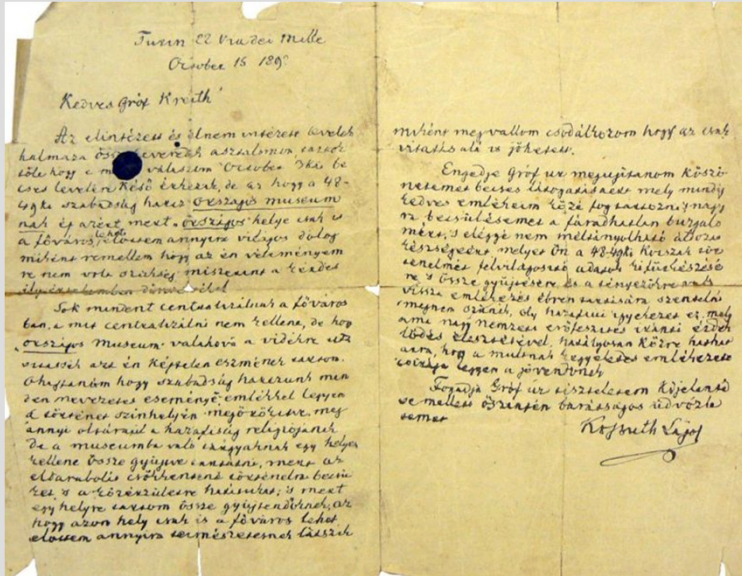 Turin 22 Via dei Mille
October 15 189
Kedves Gróf Kreith!
Az elintézett és el nem intézett levelek
halmaza össze keveredek asztalomon, tartok
tőle hogy e m válaszom October 3ki be
cses levelére késő érkezik, de az hogy a 48-
49ki szabadság harcz országos museum
nak és azért, mert országos helye csak is
a főváros lehet előttem annyira világos dolog
miként remélem hogy az én véleményem
re nem volt szükség miszerint a kérdés
ily értelemben
Sok mindent centralizálnak a főváros
ban, a mit centralizálni nem kellene, de hogy
országos Museum valahová a vidékre
azt én képtelen eszmének tartom.
Óhajtanám hogy szabadság harczunk min
den nevezetes eseménye emlékkel legyen
a történet színhelyén megörökítve, meg
annyi oltáraiul a hazafiság religiójának
de a museumba való tárgyaknak egy helyen
kellene össze gyűjtve tartatni, mert az
eldarabolás csökkentené történelmi becsü
ket, 's a közérzületre hatásukat; 's mert
egy helyre tartom össze gyűjtendőnek, az
hogy azon hely csak is a főváros lehet
előttem annyira természetesnek látszik
miként megvallom csodálkozom hogy az csak
vitatás alá is jöhetett.
Engedje Gróf úr megujitanom köszö
netemet becses látogatásáért mely mindig
kedves emlékeim közé fog tartozni; 's nagy
ra becsülésemet a fáradhatlan buzgalo
mért, 's eléggé nem méltányolható áldozat
készségeért melyet Ön a 48-49ki korszak tör
ténelmét felvilágosító adatok kifürkészésé
re 's össze gyűjtésére és a tényezőkre való
vissza emlékezés ébren tartására szentelni
megnem szünik, oly hazafiui igyekezet ez, mely
ama nagy nemzeti erőfeszítés iránti érdek
lődés élesztésével, hatályosan közre hathat
arra, hogy a multnak kegyeletes emlékezete
legyen a jövendőnek
Fogadja Gróf úr tiszteletem kijelenté
se mellett őszintén barátságos üdvözle
temet
Kossuth Lajos